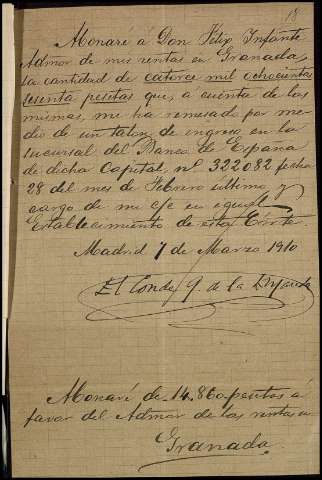 18
Monaré á Don Felix Infante
Admor de mis rentas en Granada,
la cantidad de catorce mil ochocientas
sesenta pesetas que, á cuenta de las
mismas, me ha remesado por me-
dio de un talon de ingreso en la
sucursal del Banco de España
de dicha Capital, nº 322082 fecha
28 del mes de Febrero último y
cargo de mi c/c en igual
Establecimiento de esta Córte.
Madrid 7 de Marzo 1910
El Conde de la
Monaré de 14.860 pesetas á
favor del Admor de las rentas en
Granada.